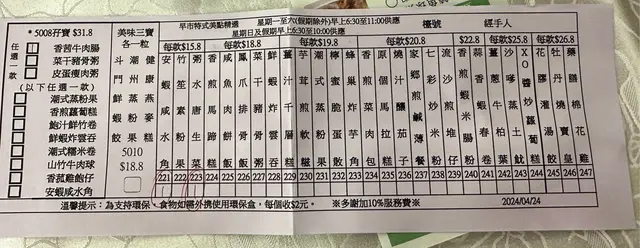 * 5008孖寶 $31.8
任選一款
香茜牛肉腸
菜干豬骨粥
皮蛋瘦肉粥
(以下任選一款)
潮式蒸粉果
香煎蘿蔔糕
鮑汁鮮竹卷
鮮蝦炸雲吞
潮式糯米卷
山竹牛肉球
香菇雞飽仔
安蝦咸水角
美味三寶
各一粒
斗門鮮蝦餃
潮州蒸粉果
健康燕麥糕
5010
$18.8
早市特式美點精選
星期一至六(假期除外)早上6:30至11:00供應
星期日及假期早上6:30至10:00供應
檯號
經手人
每款$15.8
每款$18.8
每款$19.8
每款$20.8
$22.8
每款$25.8
安蝦咸水角
竹笙素粉果
水唐生菜
香煎馬蹄糕
咸魚肉餅飯
鳳爪排骨飯
菜干豬骨粥
鮮蝦雲吞
薑汁千層糕
芋茸煎軟糍
潮式蒸粉果
蜂巢炸芋角
香煎菜肉包
原個馬拉糕
煎釀茄子
家鄉煎鹹薄餐
七彩炒米粉
流沙煎堆仔
香煎蝦米腸
蒜香蝦春卷
薑蔥牛柏葉
沙嗲蒸土魷
XO醬炒蘿蔔糕
花膠灌湯餃
牡丹燒賣皇
藥膳棉花雞
221 222 223 224 225 226 227 228 229 230 231 232 233 234 235 236 237 238 239 240 241 242 243 244 245 246 247
溫馨提示：為支持環保，食物如需外携使用環保盒，每個收$2元。
※多謝加10%服務費※
2024/04/24